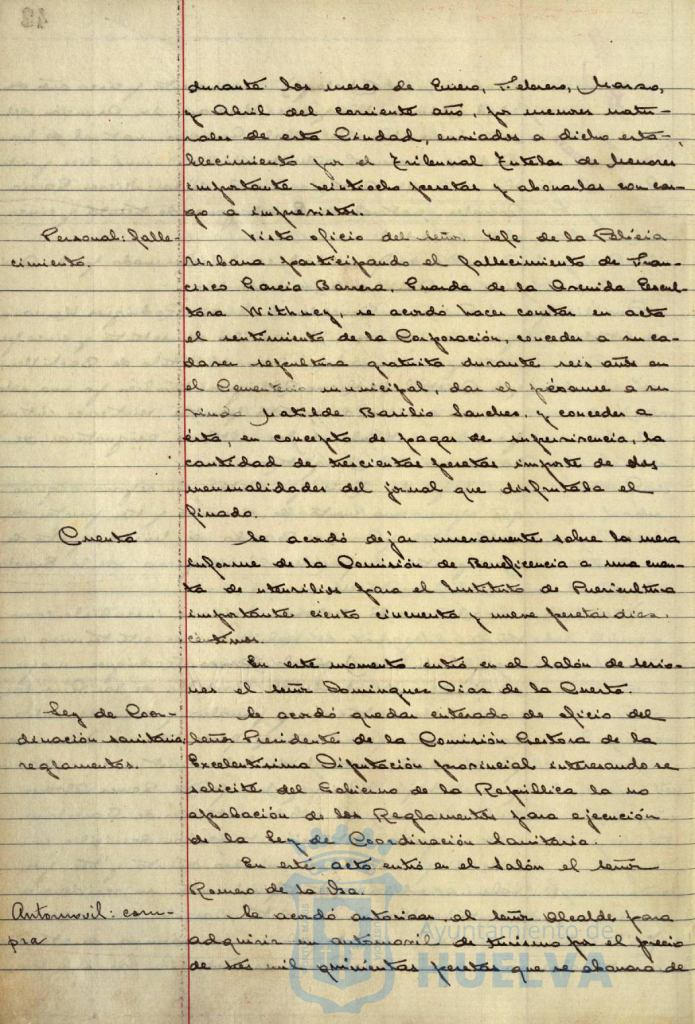 durante los meses de Enero, Febrero, Marzo,
y Abril del corriente año, por menores natu-
rales de esta Ciudad, enviados a dicho esta-
blecimiento por el Tribunal Tutelar de Menores
importante veintiocho pesetas y abonarlas con car-
go a imprevistos.
Personal: falle-
cimiento.
Visto oficio del Señor Jefe de la Policia
Urbana participando el fallecimiento de Fran-
cisco Garcia Barrera, Guarda de la Avenida Escul-
tora Withney, se acordó hacer constar en acta
el sentimiento de la Corporación, conceder a su ca-
daver sepultura gratuita durante seis años en
el Cementerio municipal, dar el pésame a su
viuda Matilde Basilio Sanchez, y conceder a
ésta, en concepto de pagas de supervivencia, la
cantidad de trescientas pesetas importe de dos
mensualidades del jornal que disfrutaba el
finado.
Cuenta
Se acordó dejar nuevamente sobre la mesa
informe de la Comisión de Beneficencia a una cuen-
ta de utensilios para el Instituto de Puericultura
importante ciento cincuenta y nueve pesetas diez
céntimos.
En este momento entró en el Salón de sesio-
nes el señor Dominguez Diaz de la Cuesta.
Ley de Coor-
dinación sanitaria:
reglamentos.
Se acordó quedar enterado de oficio del
Señor Presidente de la Comisión Gestora de la
Excelentisima Diputación provincial interesando se
solicite del Gobierno de la República la no
aprobación de los Reglamentos para ejecución
de la Ley de Coordinación Sanitaria.
En este acto entró en el Salón el señor
Romero de la Isa.
Automovil: com-
pra
Se acordó autorizar al señor Alcalde para
adquirir un automovil de turismo por el precio
de tres mil quinientas pesetas que se abonara de
Ayuntamiento de
HUELVA